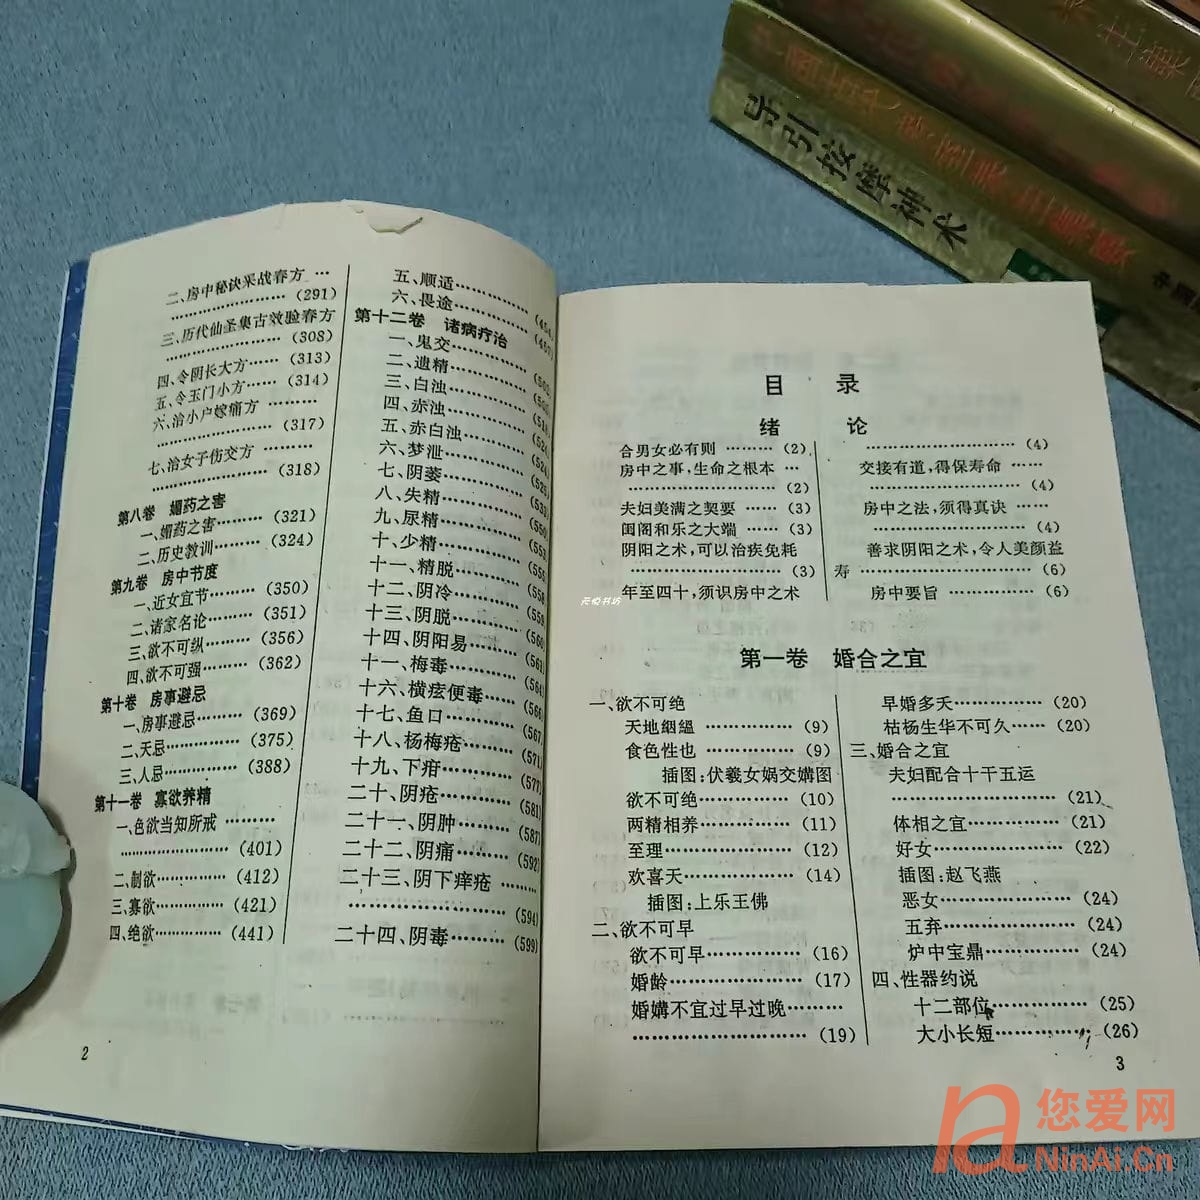 二、房中秘诀采战春方 …
…………………… (291)
三、历代仙圣集古效验春方
…………………… (308)
四、令阴长大方 …… (313)
五、令玉门小方 …… (314)
六、治小户嫁痛方 ………
…………………… (317)
七、治女子伤交方 ……
…………………… (318)
第八卷 媚药之害
一、媚药之害 ……… (321)
二、历史教训 ……… (324)
第九卷 房中节度
一、近女宜节 ……… (350)
二、诸家名论 ……… (351)
三、欲不可纵 ……… (356)
四、欲不可强 ……… (362)
第十卷 房事避忌
一、房事避忌 ……… (369)
二、天忌 …………… (375)
三、人忌 …………… (388)
第十一卷 寡欲养精
一、色欲当知所戒 ………
…………………… (401)
二、制欲 …………… (412)
三、寡欲 …………… (421)
四、绝欲 …………… (441)
五、顺适 ……………
六、畏途 ……………
第十二卷 诸病疗治
一、鬼交 ……………
二、遗精 ……………
三、白浊 ……………
四、赤浊 ……………
五、赤白浊 …………
六、梦泄 …………… (524)
七、阴萎 …………… (525)
八、失精 ……………
九、尿精 …………… (550)
十、少精 …………… (553)
十一、精脱 ………… (555)
十二、阴冷 ………… (556)
十三、阴脱 ………… (559)
十四、阴阳易 ……… (560)
十一、梅毒 ………… (564)
十六、横痃便毒 …… (566)
十七、鱼口 ………… (567)
十八、杨梅疮 ……… (571)
十九、下疳 ………… (577)
二十、阴疮 ………… (581)
二十一、阴肿 ……… (587)
二十二、阴痛 ……… (592)
二十三、阴下痒疮 ………
…………………… (594)
二十四、阴毒 ……… (599)
2
目 录
绪 论
合男女必有则 ……… (2)
房中之事,生命之根本 …
…………………… (2)
夫妇美满之契要 …… (3)
闺阁和乐之大端 …… (3)
阴阳之术,可以治疾免耗
…………………… (3)
年至四十,须识房中之术
…………………… (4)
交接有道,得保寿命 ……
…………………… (4)
房中之法,须得真诀 ……
…………………… (4)
善求阴阳之术,令人美颜益
寿 …………………… (6)
房中要旨 …………… (6)
第一卷 婚合之宜
一、欲不可绝
天地絪緼 …………… (9)
食色性也 …………… (9)
插图:伏羲女娲交媾图
欲不可绝 …………… (10)
两精相养 …………… (11)
至理 ………………… (12)
欢喜天 ……………… (14)
插图:上乐王佛
二、欲不可早
欲不可早 …………… (16)
婚龄 ………………… (17)
婚媾不宜过早过晚 ………
…………………… (19)
早婚多夭 …………… (20)
枯杨生华不可久 …… (20)
三、婚合之宜
夫妇配合十干五运
…………………… (21)
体相之宜 …………… (21)
好女 ………………… (22)
插图:赵飞燕
恶女 ………………… (24)
五弃 ………………… (24)
炉中宝鼎 …………… (24)
四、性器约说
十二部位 …………… (25)
大小长短 …………… (26)
3
导引按摩神术
天悦书坊
您爱网
NinAi.Cn